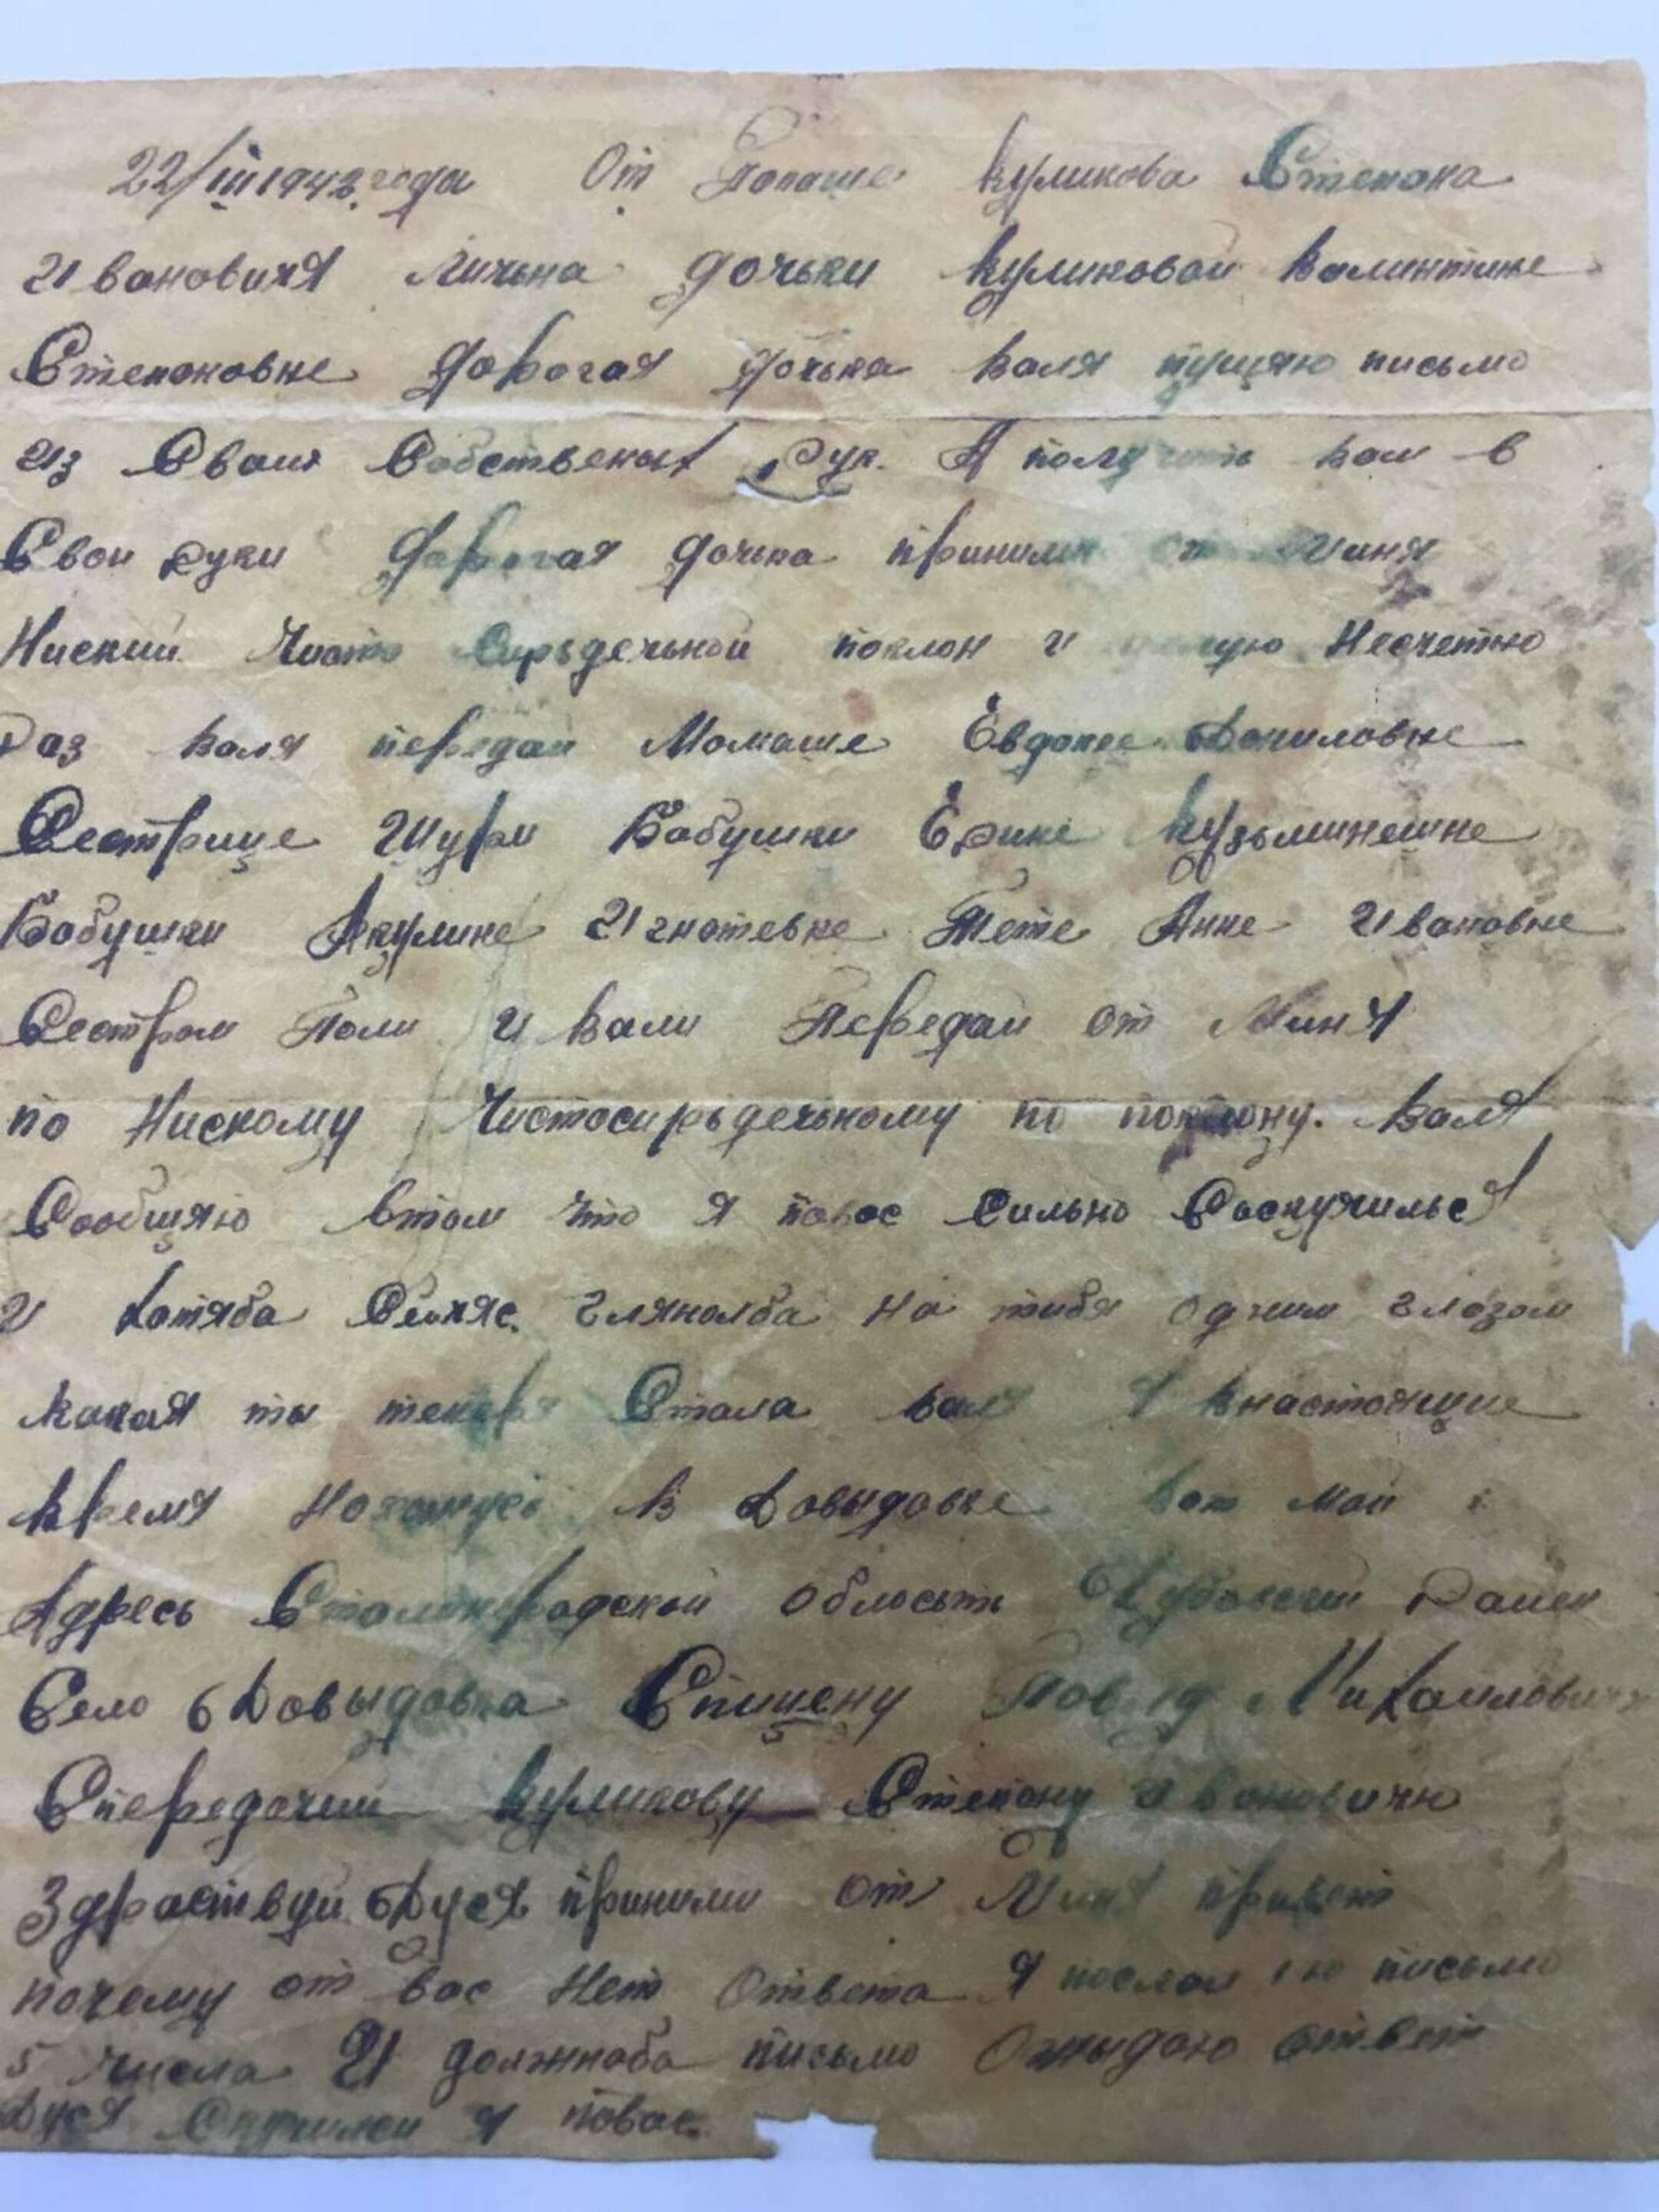 22/III 1942 года От Папаше Куликова Степана
Ивановичя Личьна дочьки Куликовой Валинтине
Степановне Дорогая дочька Валя пущяю письмо
из Сваих Собственых рук. А получить вам в
Свои руки Дорогая дочька приними от Миня
Ниский Чисто Сирьдечьной поклон и целую Несчетно
Раз Валя передай Мамаше Евдокее Даниловне
Сестрице Шури Бабушки Ерине Кузьминешне
Бабушки Акулине Игнатевне Тете Анне Ивановне
Сестрам Поли и Вали Передай от Миня
по Нискому Чистосирьдечькому по поклону. Валя
Сообщяю втом что я повас Сильно Соскучильсе
И Хотяба Сейчяс глянолба на тибя одним глазом
какая ты теперь Стала Валя Я внастоящие
время нахожусь В Давыдовке вот мой
Адресь Сталинградской область Дубовский Раиен
Село Давыдовка Спицену Михаиловичю
Спередачий Куликову Степану Ивановичю
Здраствуй Дуся приними от Миня привет
почему от вас Нет Ответа Я послал 1ю письмо
5 Числа И должнаба письмо Ожыдаю ответ
Дуся Скучился я повас.